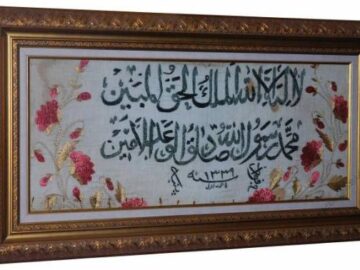 لا إله إلا الله الملك الحق المبين
محمد رسول الله صادق الوعد الأمين
سنة ١٣٣١